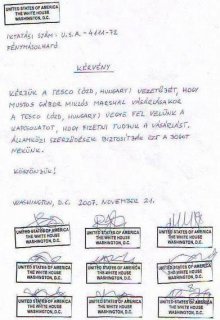 UNITED STATES OF AMERICA
THE WHITE HOUSE
WASHINGTON, D.C.
IKTATÁSI SZÁM: U.S.A. - 4111-72
FÉNYMÁSOLHATÓ
KÉRVÉNY
KÉRJÜK A TESCO (ÓZD, HUNGARY) VEZETŐJÉT, HOGY
MUSTOS GÁBOR MIKLÓS MARSHAL VÁSÁRLÁSAKOR
A TESCO (ÓZD, HUNGARY) VEGYE FEL VELÜNK A
KAPCSOLATOT, HOGY FIZETNI TUDJUK A VÁSÁRLÁST,
ÁLLAMKÖZI SZERZŐDÉSEK BIZTOSÍTJÁK EZT A JOGOT
NEKÜNK.
KÖSZÖNJÜK!
WASHINGTON, D.C. 2007. NOVEMBER 21.
UNITED STATES OF AMERICA
THE WHITE HOUSE
WASHINGTON, D.C.
UNITED STATES OF AMERICA
THE WHITE HOUSE
WASHINGTON, D.C.
UNITED STATES OF AMERICA
THE WHITE HOUSE
WASHINGTON, D.C.
UNITED STATES OF AMERICA
THE WHITE HOUSE
WASHINGTON, D.C.
UNITED STATES OF AMERICA
THE WHITE HOUSE
WASHINGTON, D.C.
UNITED STATES OF AMERICA
THE WHITE HOUSE
WASHINGTON, D.C.
UNITED STATES OF AMERICA
THE WHITE HOUSE
WASHINGTON, D.C.
UNITED STATES OF AMERICA
THE WHITE HOUSE
WASHINGTON, D.C.
UNITED STATES OF AMERICA
THE WHITE HOUSE
WASHINGTON, D.C.